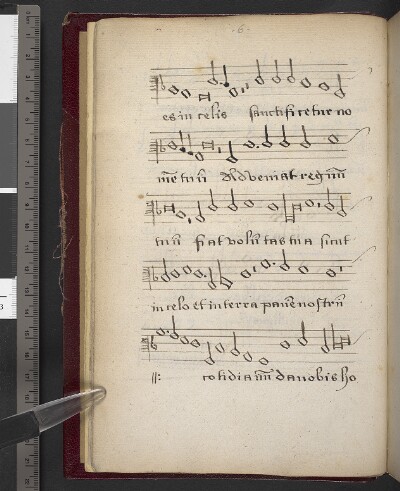 6
es in celis sanctificetur no
mē tuū Adveniat regnū
tuū fiat volūtas tua sicut
in celo et in terra panē nostrū
//: cotidianū da nobis ho